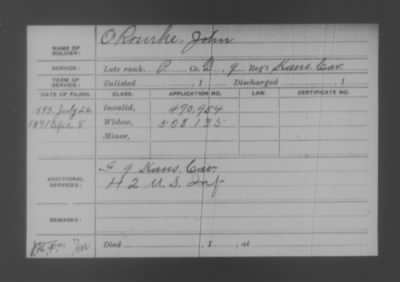 NAME OF SOLDIER: O'Rourke, John
SERVICE: Late rank, P. Co. D, 9 Reg't Kans. Cav.
TERM OF SERVICE: Enlisted , 1 Discharged , 1
DATE OF FILING. CLASS. APPLICATION NO. LAW. CERTIFICATE NO.
1883 July 26 Invalid, 490,954
1891 Apr 8 Widow, 508,135
Minor,
G 9 Kans. Cav.
ADDITIONAL SERVICES: H 2 U.S. Inf.
REMARKS:
Died , 1 , at